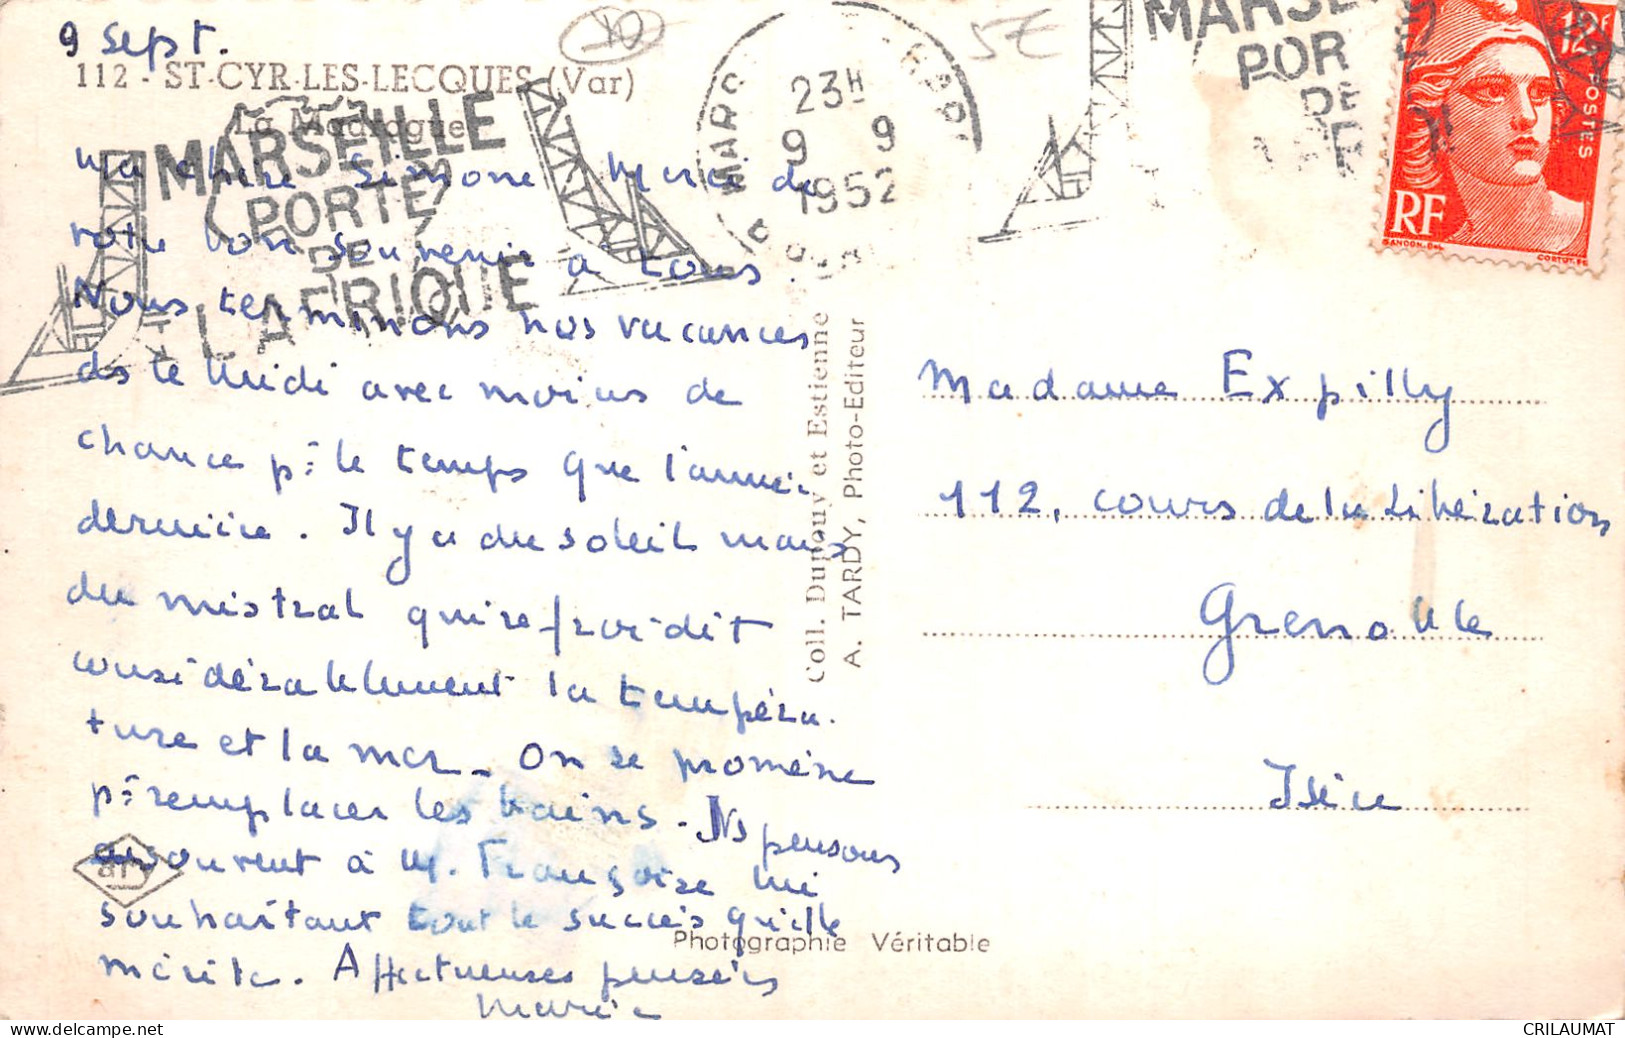 9 sept.
112 - ST-CYR-LES-LECQUES (Var)
La Madrague
MARSEILLE
PORTE
DE
L'AFRIQUE
23H
9 9
1952
MARSE
POR
DE
5€
12F
POSTES
RF
GANDON-DEL
CORTOT.FC
ma chère Simone Merci de
votre bon souvenir à tous.
Nous terminons nos vacances
ds le Midi avec moins de
chance pr le temps que l'année
dernière. Il y a du soleil mais
du mistral qui refroidit
considérablement la tempéra-
ture et la mer - On se promène
pr remplacer les bains - Ns pensons
souvent à M. Françoise lui
souhaitant tout le succès qu'elle
mérite. Affectueuses pensées
Marie
Coll. Dupouy et Estienne
A. TARDY, Photo-Editeur
Madame Expilly
112, cours de la Libération
Grenoble
Isère
Photographie Véritable
CRILAUMAT
www.delcampe.net